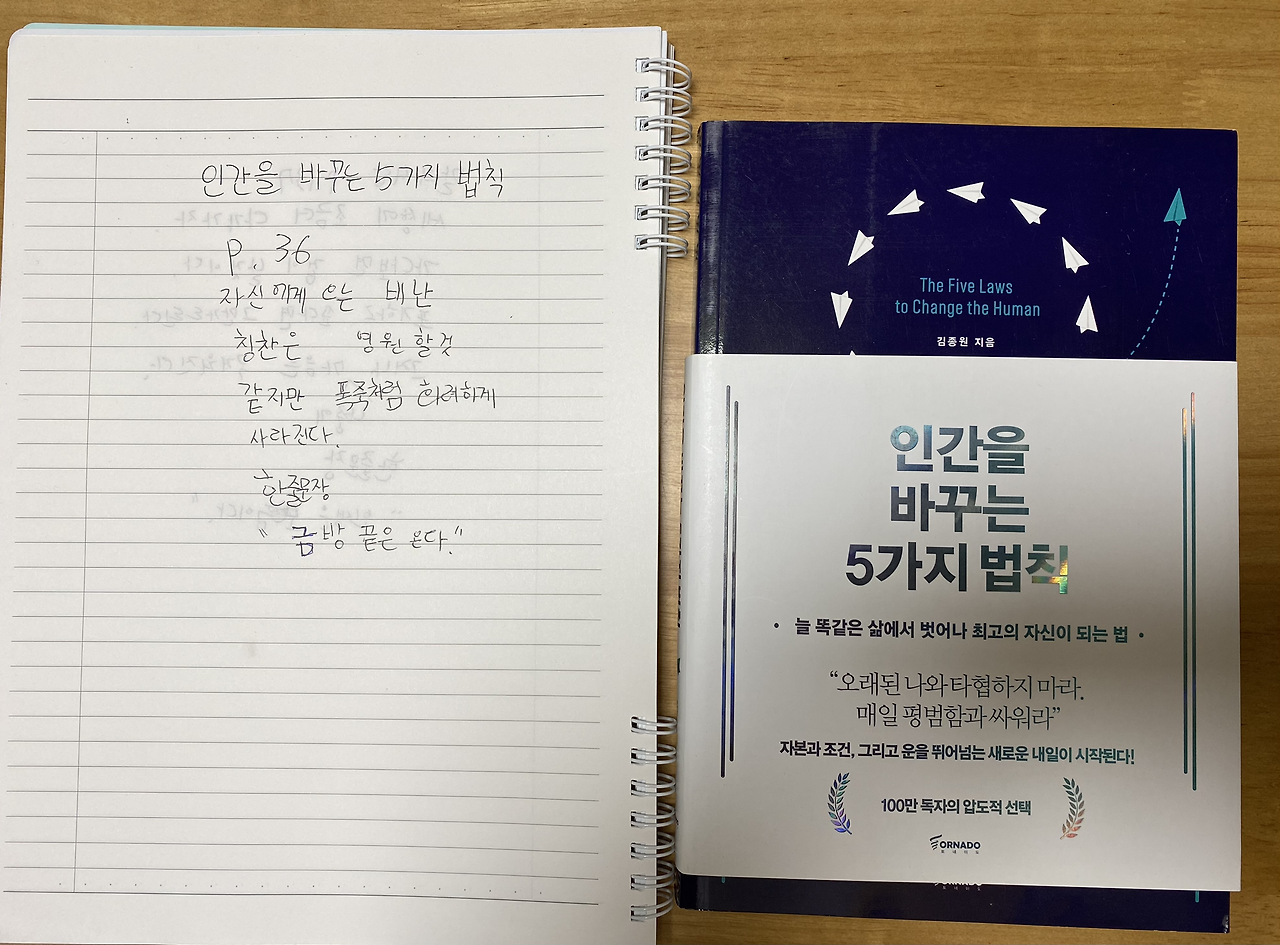 인간을 바꾸는 5가지 법칙
P. 36
자신에게 오는 비난
칭찬은 영원 할것
같지만 폭죽처럼 화려하게
사라진다.
한줄문장
"금방 끝은 온다."
The Five Laws
to Change the Human
김종원 지음
인간을
바꾸는
5가지 법칙
• 늘 똑같은 삶에서 벗어나 최고의 자신이 되는 법 •
“오래된 나와 타협하지 마라.
매일 평범함과 싸워라”
자본과 조건, 그리고 운을 뛰어넘는 새로운 내일이 시작된다!
100만 독자의 압도적 선택
TORNADO
토네이도